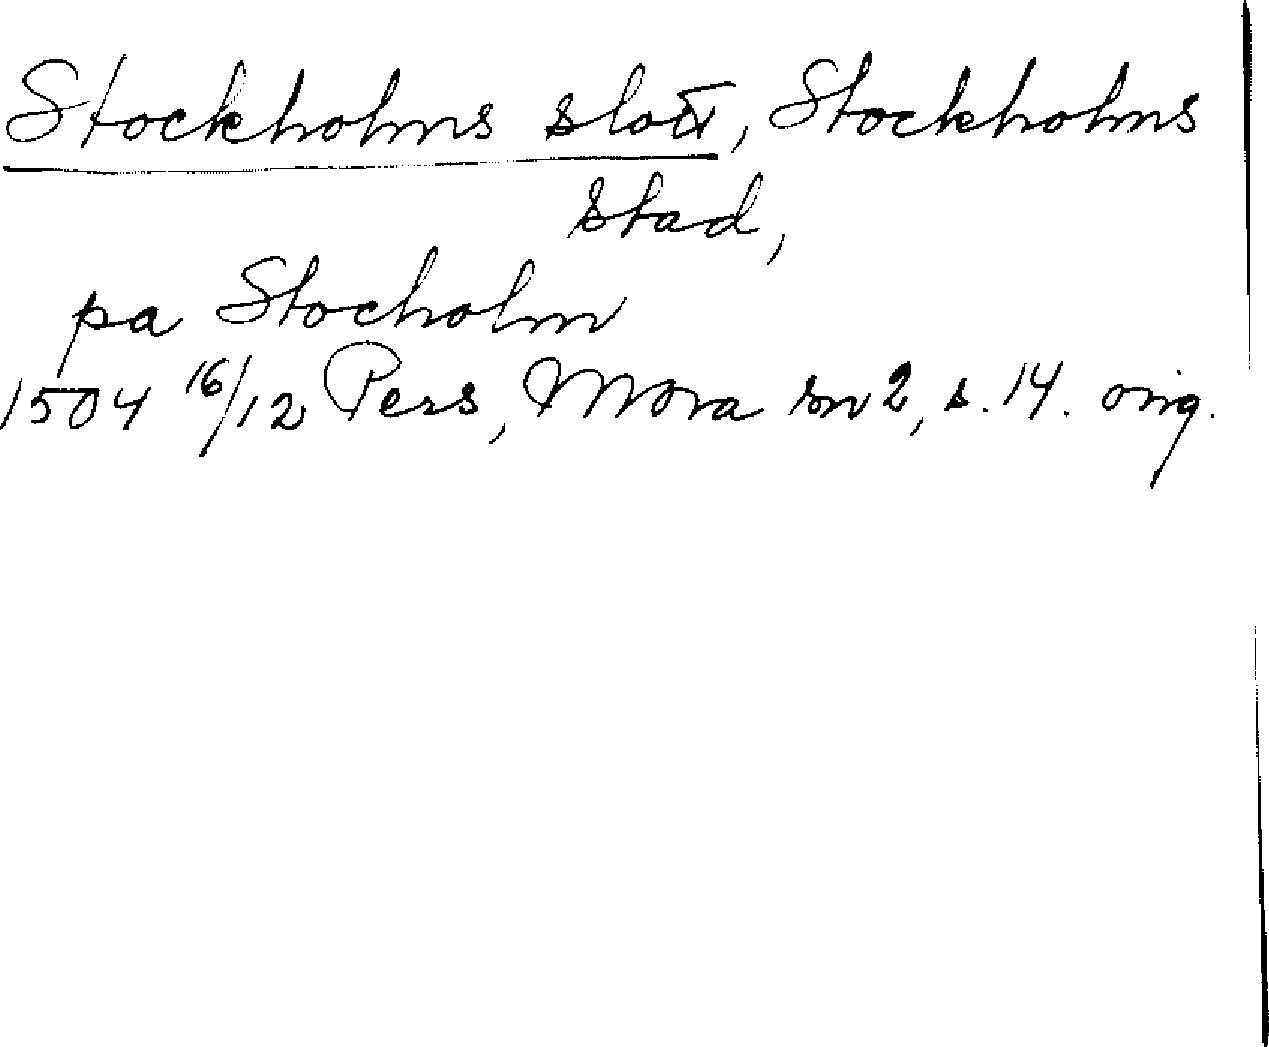 Stockholms slott, Stockholms
stad,
pa Stocholm
1504 16/12 Pers, Mora sn 2, s. 14. orig.